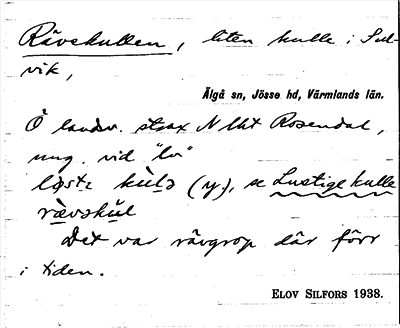 Rävekullen, liten kulle i Sul-
vik,
Älgå sn, Jösse hd, Värmlands län.
Ö landsv. strax N lht Rosendal,
ung. vid "lv"
kùlə (y), se Lustige kulle
rævəkùl
Det var rävgrop där förr
i tiden.
ELOV SILFORS 1938.